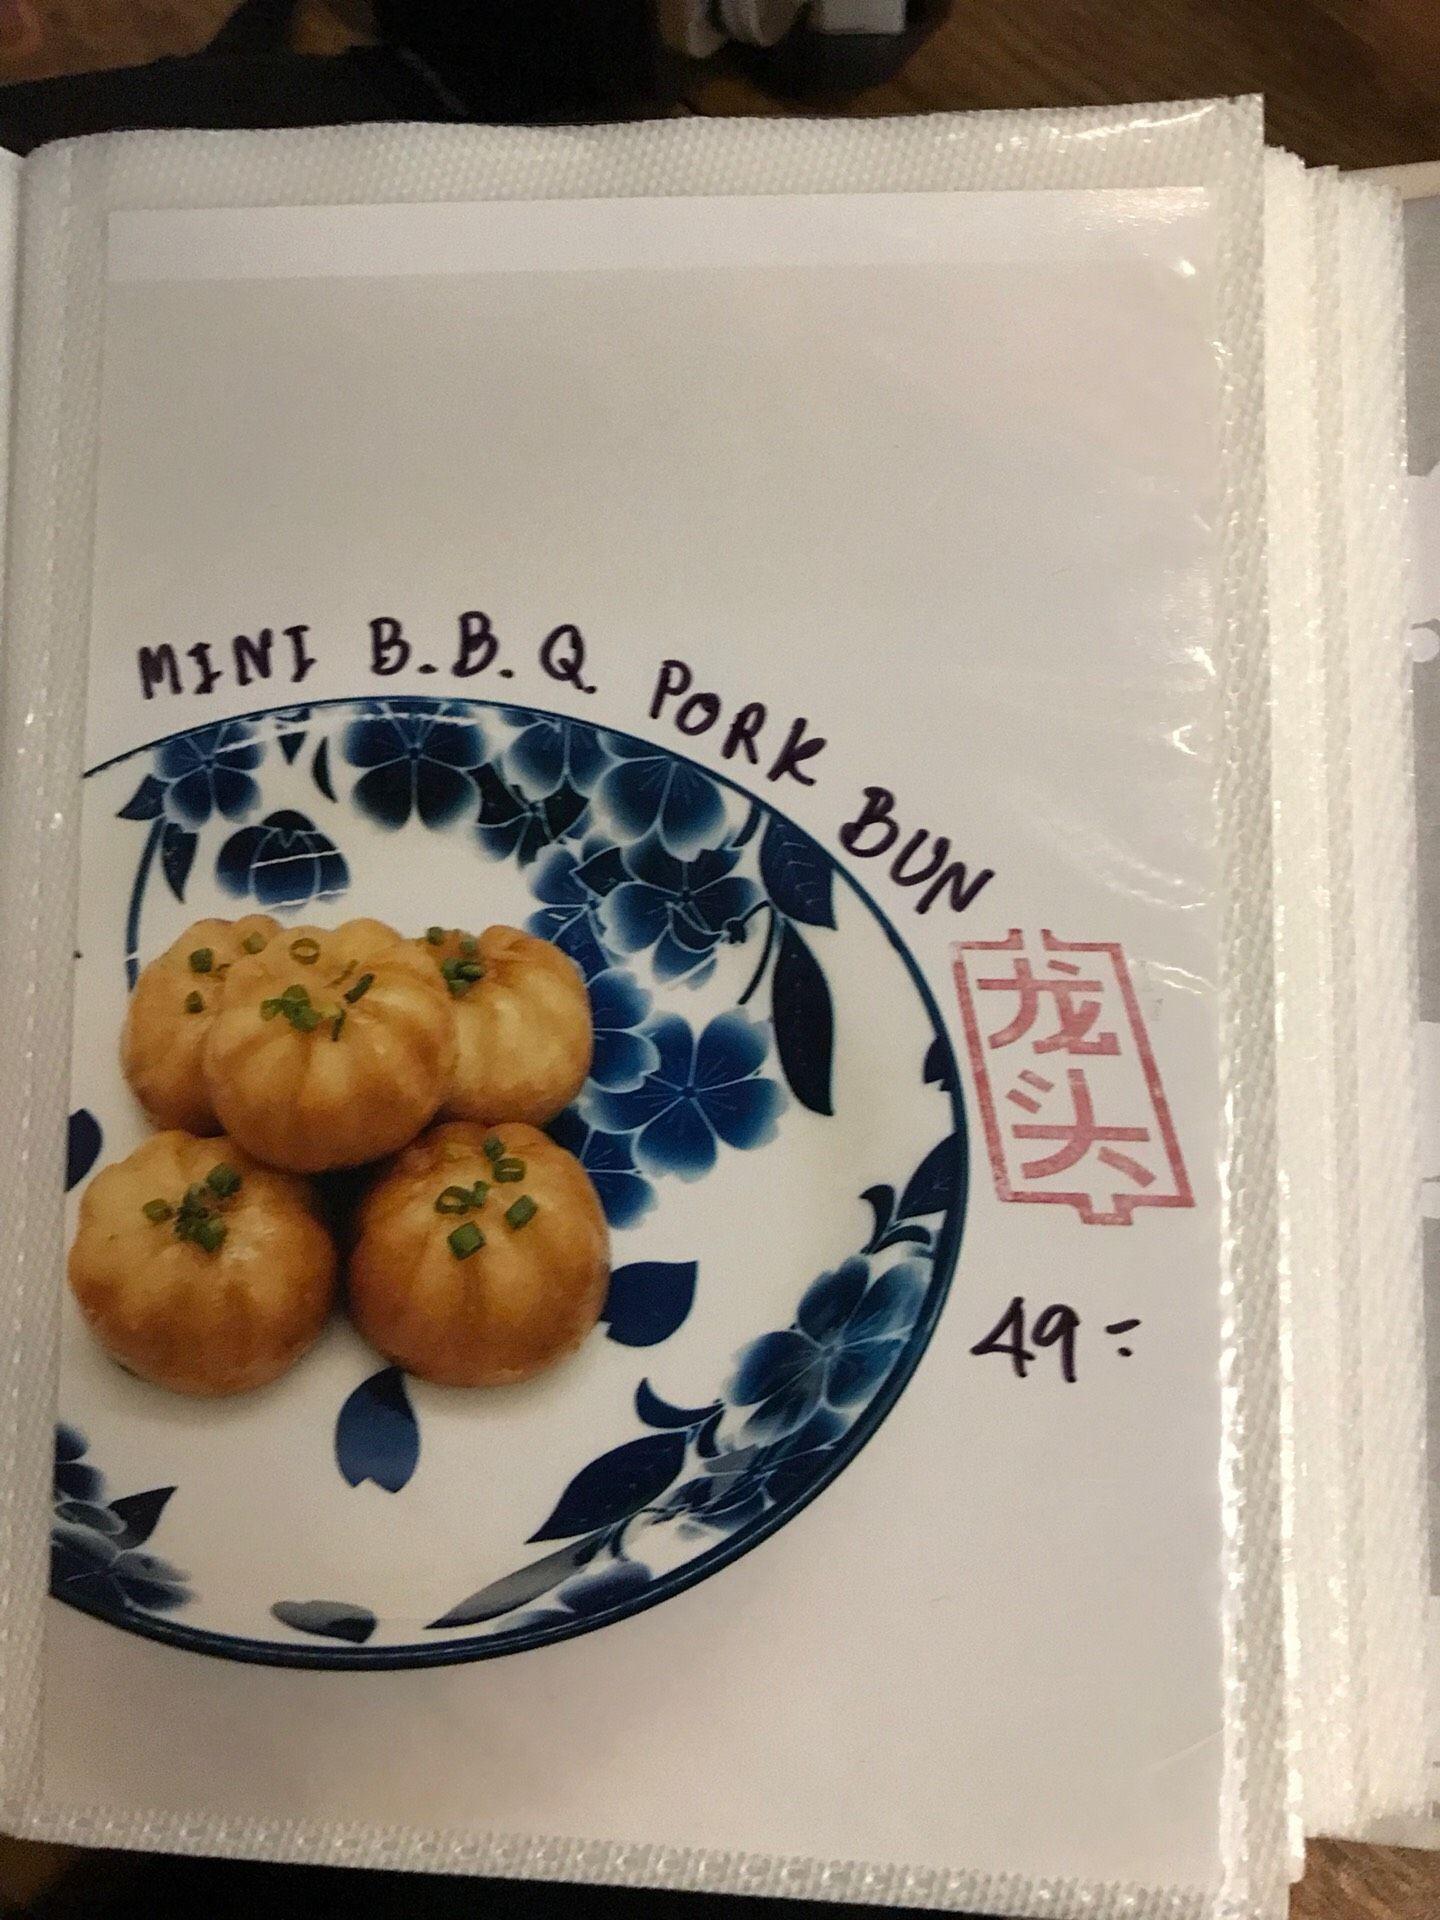 MINI B.B.Q. PORK BUN
龙
头
49:-